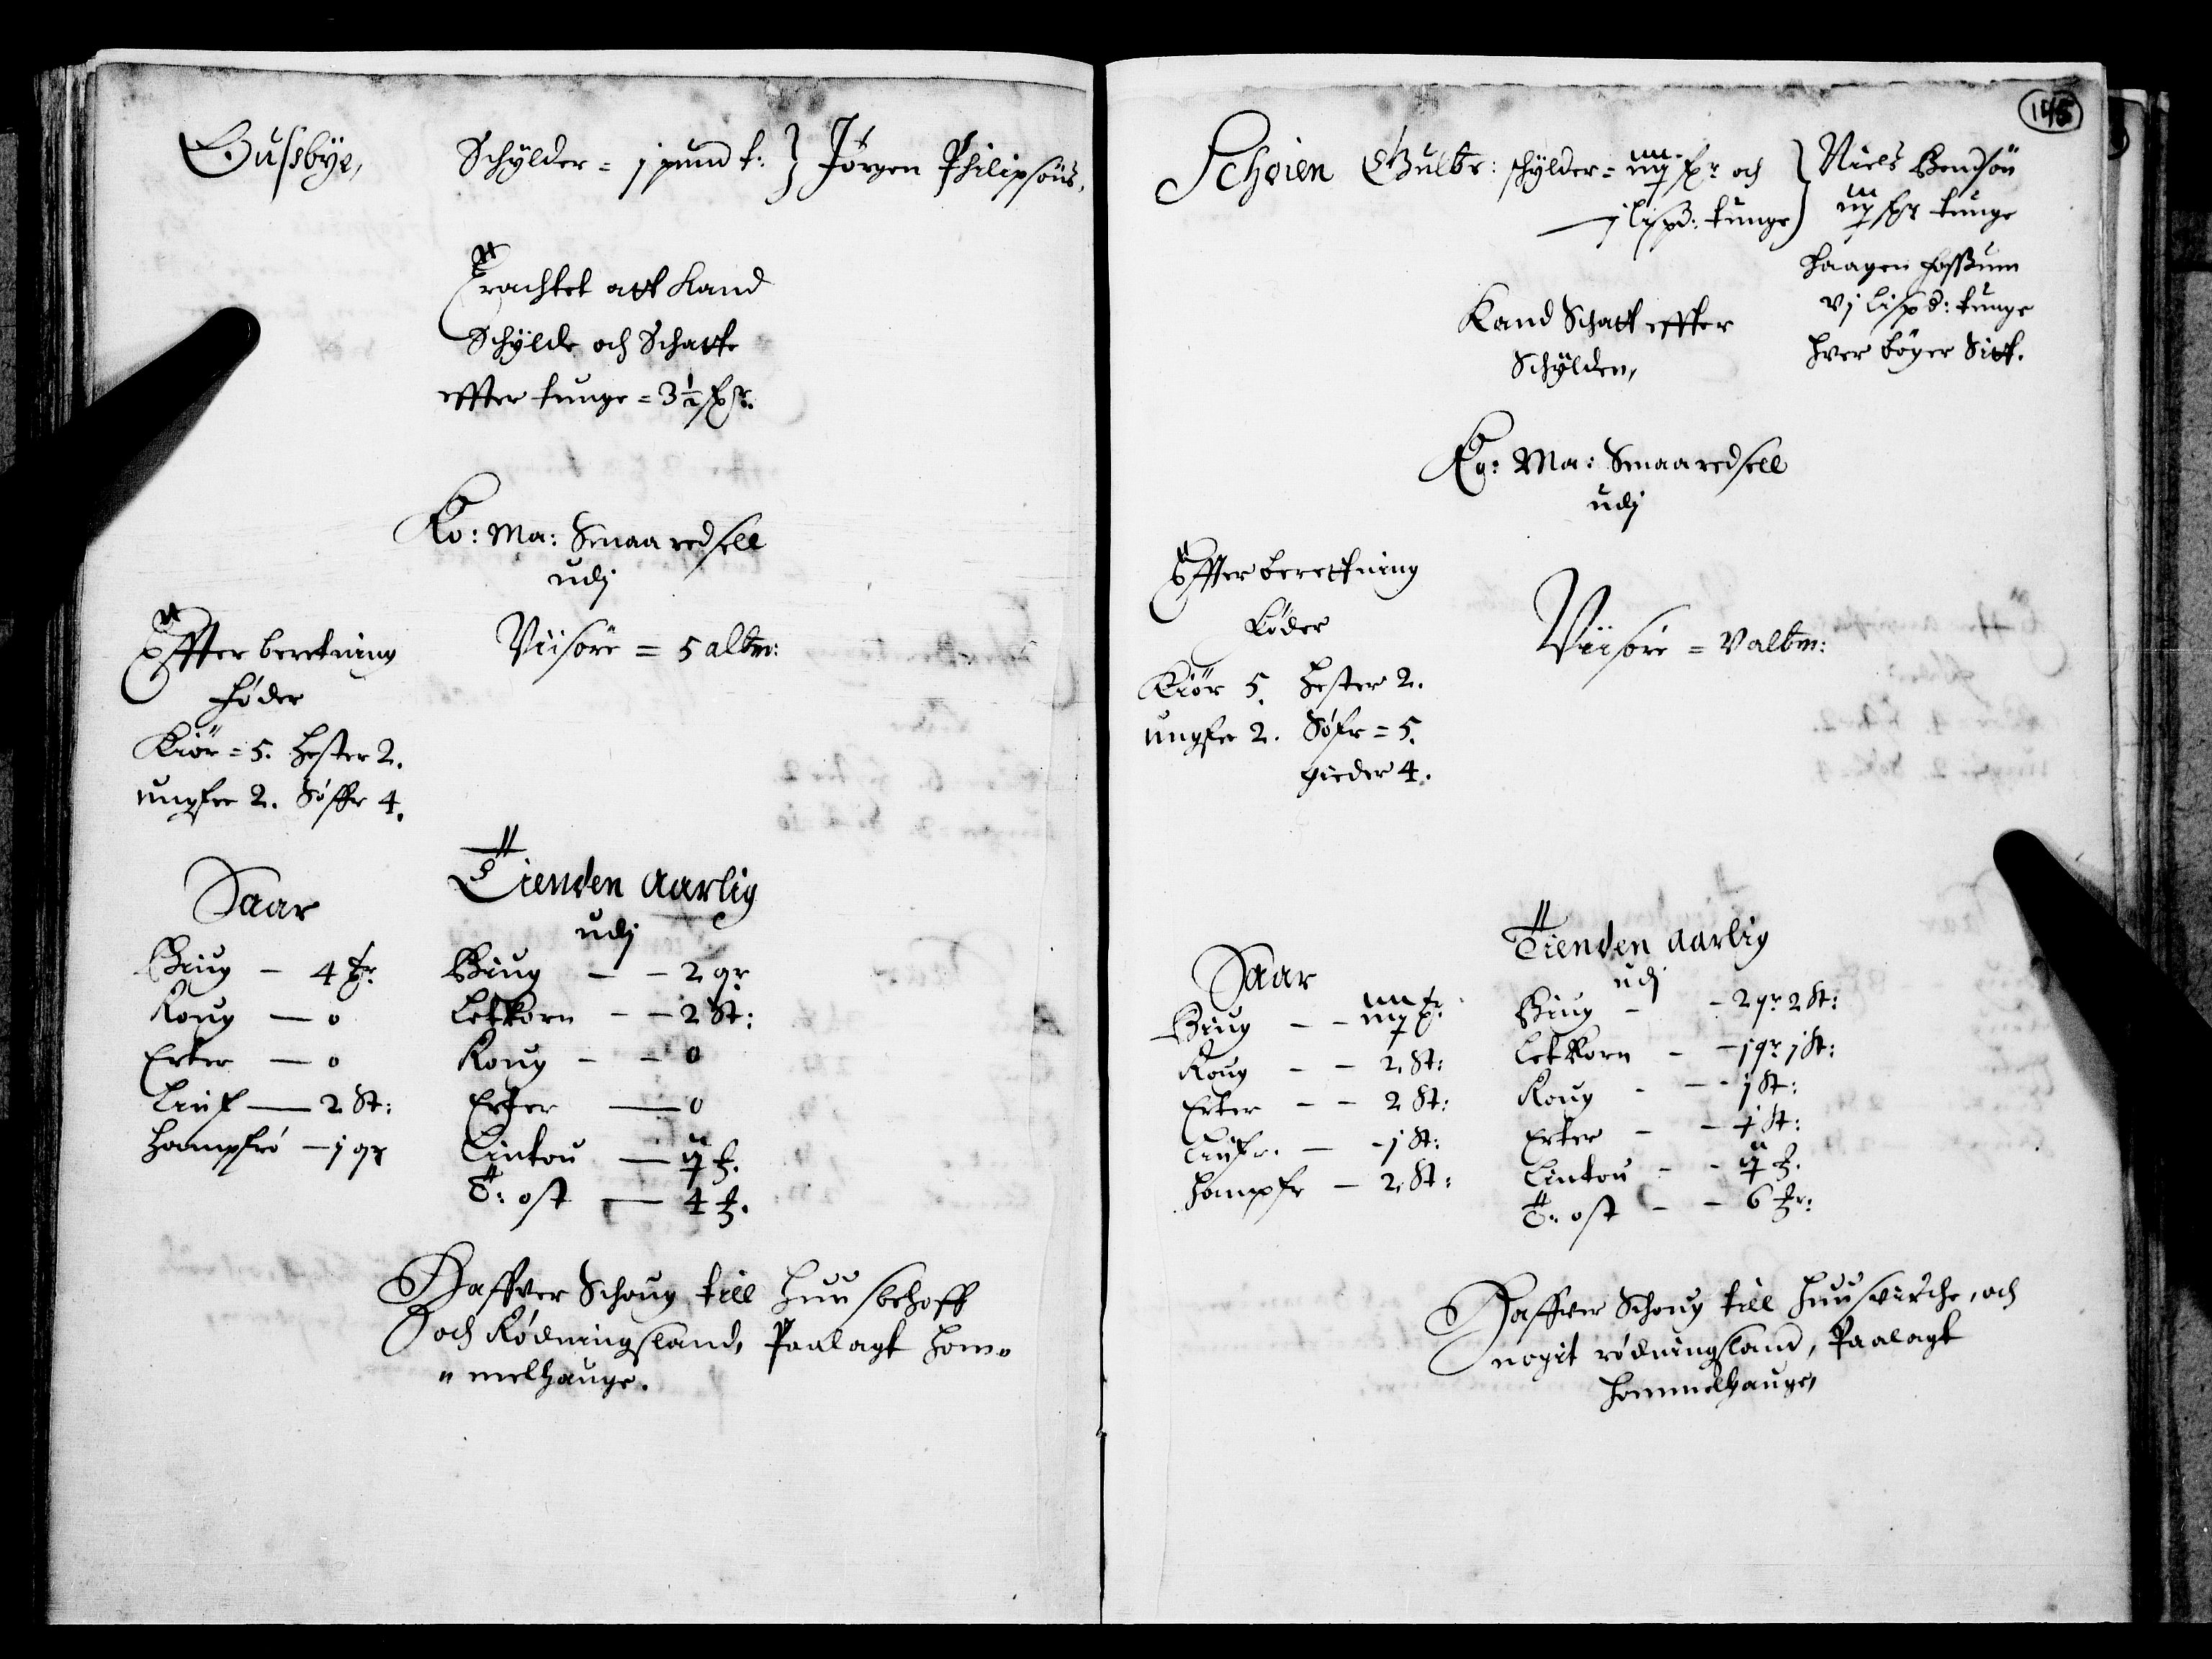 Gusbÿe,
Schÿlder = j pund t: } Jørgen Philipsøns,
Trachtet att Kand
Schÿlde och Schatte
effter tunge = 3½ sꝑr.
Ko: Ma: Smaa redsell
udj
Viisøre = 5 albm:
Effter beretning
føder
Kiør = 5. hester 2.
ungfee 2. Søffr 4.
Saar
Biug - 4 tr.
Roug - 0
Erter - 0
Linf - 2 St:
hampfrø - j qr
Tienden Aarlig
udj
Biug - - 2 qr
Letkorn - - 2 St:
Roug - - 0
Erter - 0
Lintou - ij ℔.
T: ost - 4 ℔.
Haffver Schoug till Huusbehoff
och Rødningsland, Paalagt hom=
= melhauge.
145
Schøien Gulbr: schÿlder = iiij sꝑr och
- j lispd: tunge
} Niels Bendsøn
iij sꝑr tunge
Haagen fossum
vj lispd: tunge
hver bøger Sitt.
Kand Schatt effter
Schÿlden,
Ko: Ma: Smaaredsell
udj
Viisøre = V albm:
Effter berettning
føder
Kiør 5. hester 2.
ungfee 2. Søfr = 5.
gieder 4.
Saar
Biug - - iiij tr.
Roug - - 2 St:
Erter - - 2 St:
Linfr. - - j St:
hampfr - 2 St:
Tienden Aarlig
udj
Biug - - 2 qr 2 St:
Letkorn - - j qr j St:
Roug - - - j St:
Erter - - j St:
Lintou - - ij ℔.
T: ost - - 6 ℔r:
Haffver Schoug till Huusvirche, och
nogit rødningsland, Paalagt
hommelhauge,